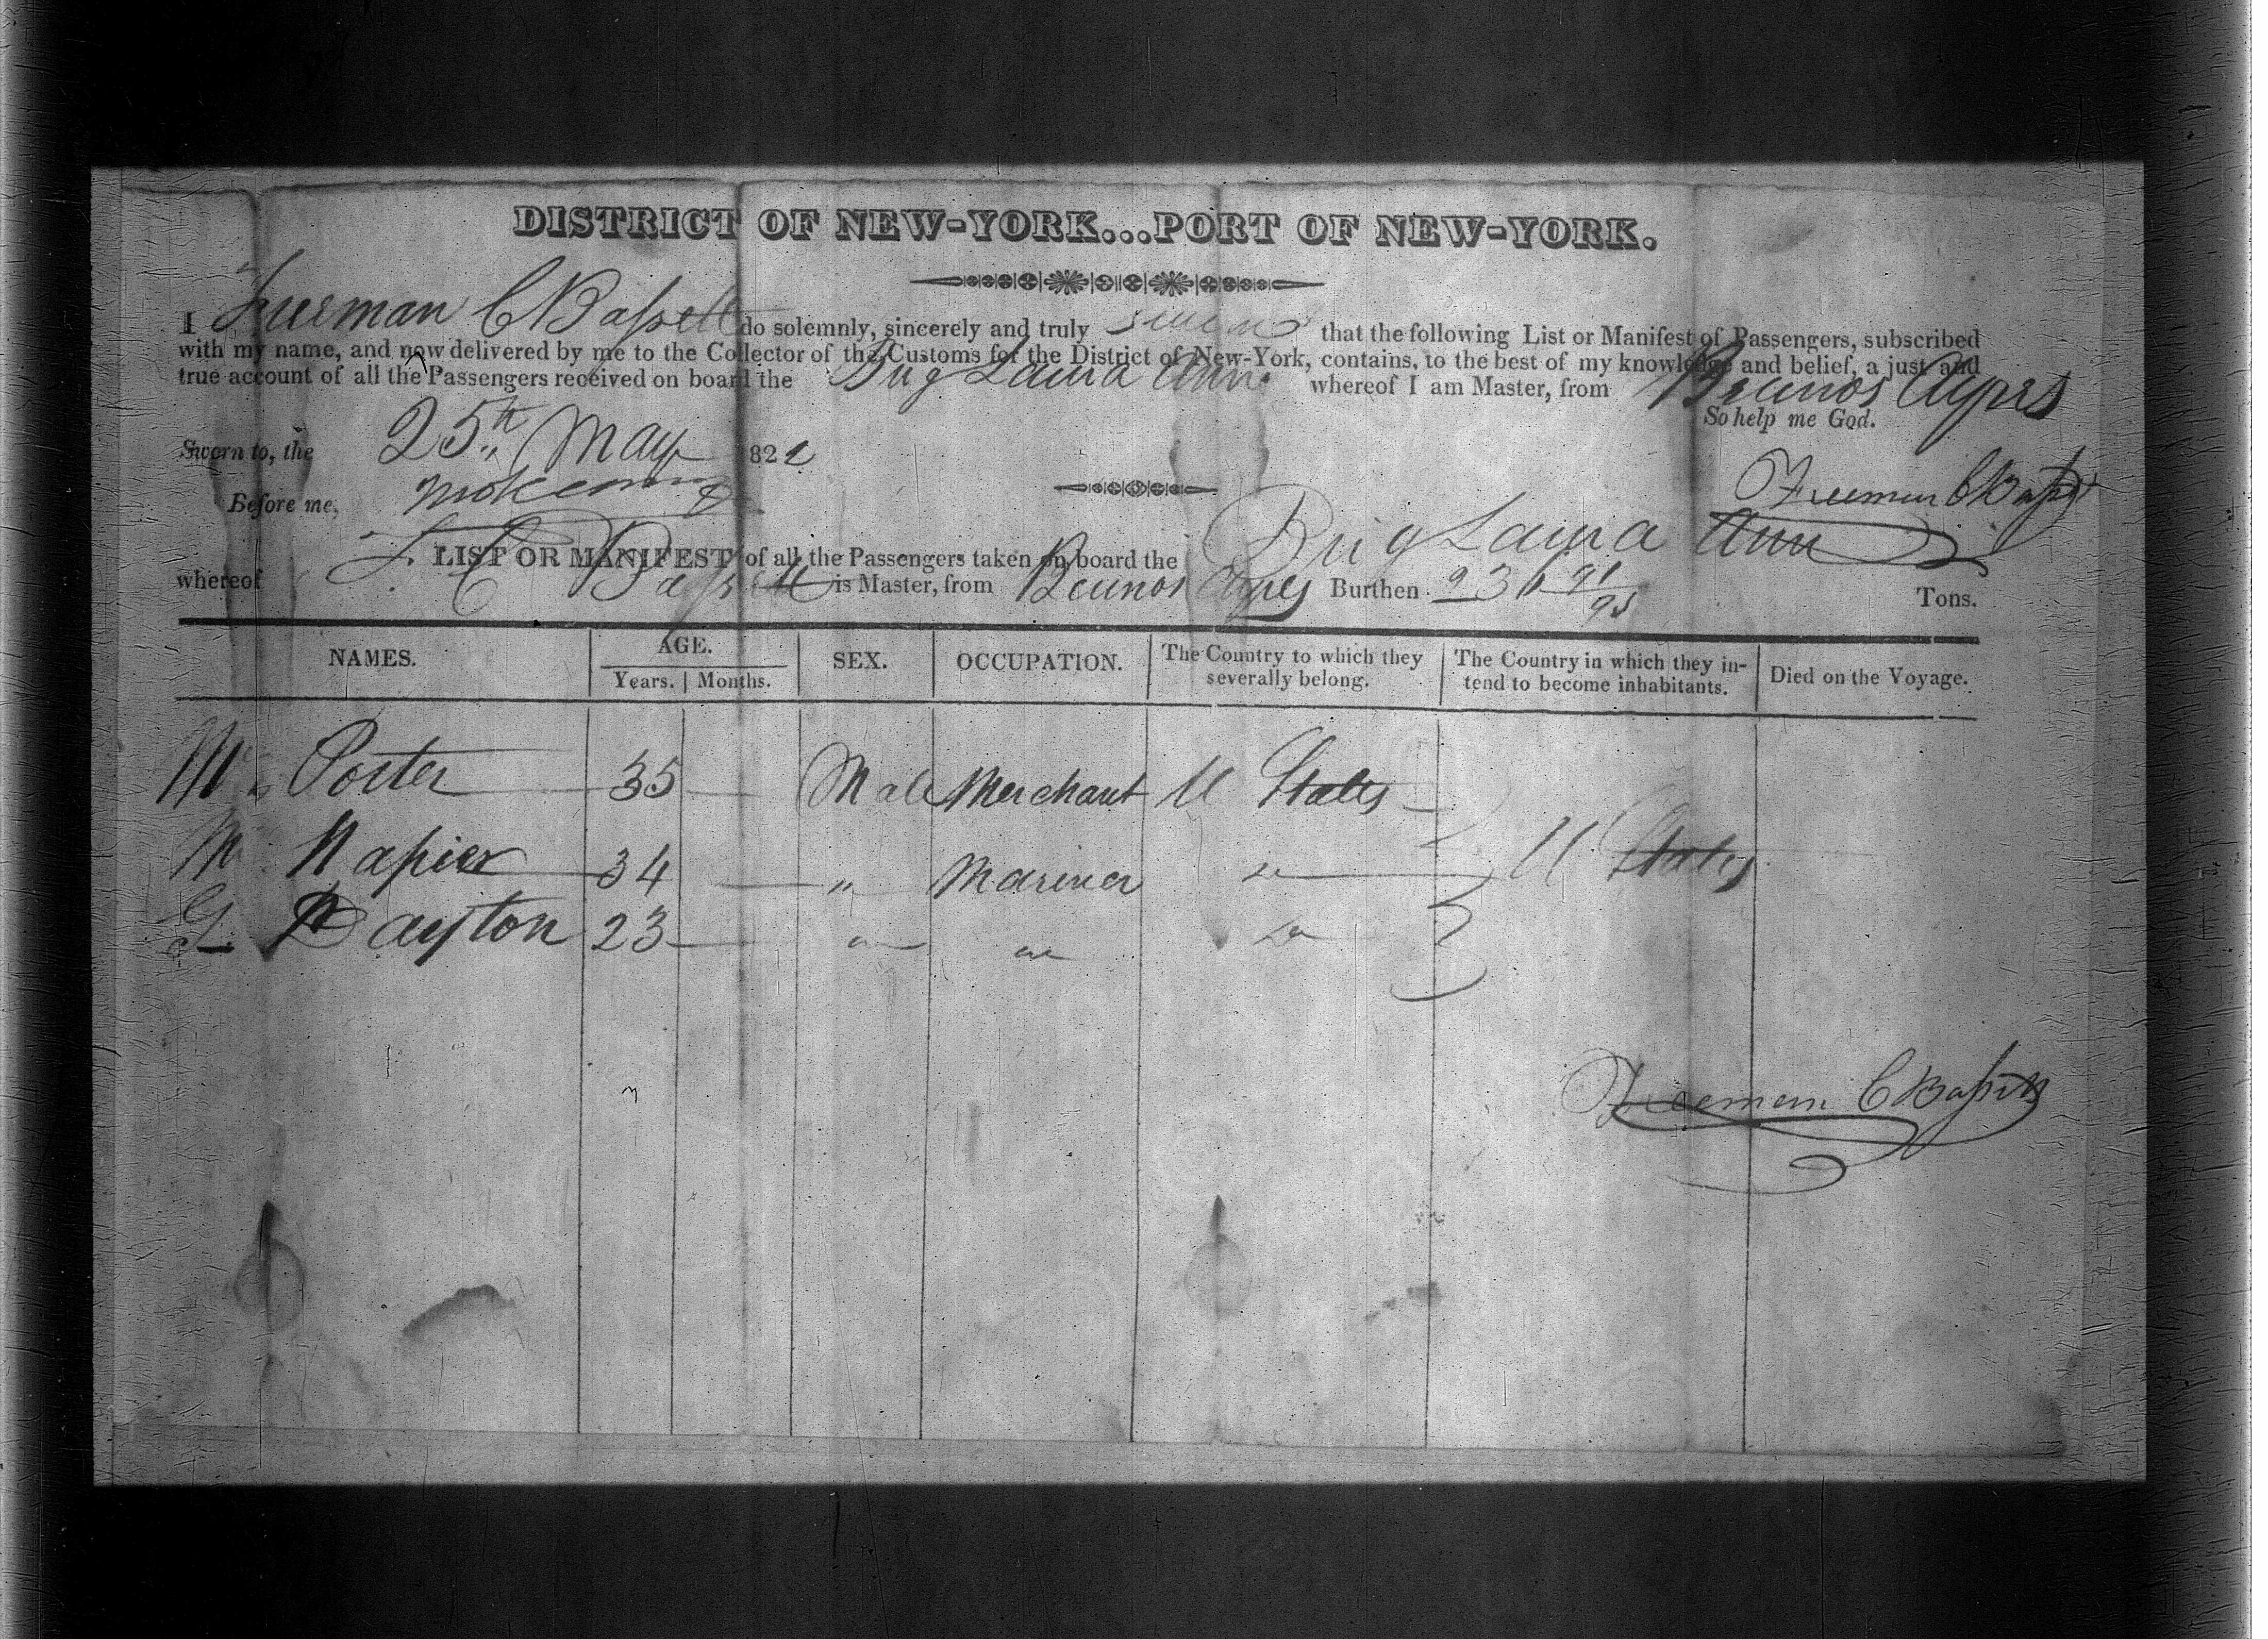 DISTRICT OF NEW-YORK...PORT OF NEW-YORK.
I Freeman C Bassett do solemnly, sincerely and truly swear that the following List or Manifest of Passengers, subscribed
with my name, and now delivered by me to the Collector of the Customs for the District of New-York, contains, to the best of my knowledge and belief, a just and
true account of all the Passengers received on board the Brig Laura Ann whereof I am Master, from Beunos Ayres
So help me God.
Sworn to, the 25th May 1822
Before me, Freeman C Bassett
LIST OR MANIFEST of all the Passengers taken on board the Brig Laura Ann
whereof F. C Bassett is Master, from Beunos Ayres Burthen 236 91/95 Tons.
NAMES. AGE. SEX. OCCUPATION. The Country to which they severally belong. The Country in which they intend to become inhabitants. Died on the Voyage.
Years. Months.
Mr Porter 35 Male Merchant U States
Mr Napier 34 " Mariner Do U States
G. Dayton 23 Do
Freeman C Bassett